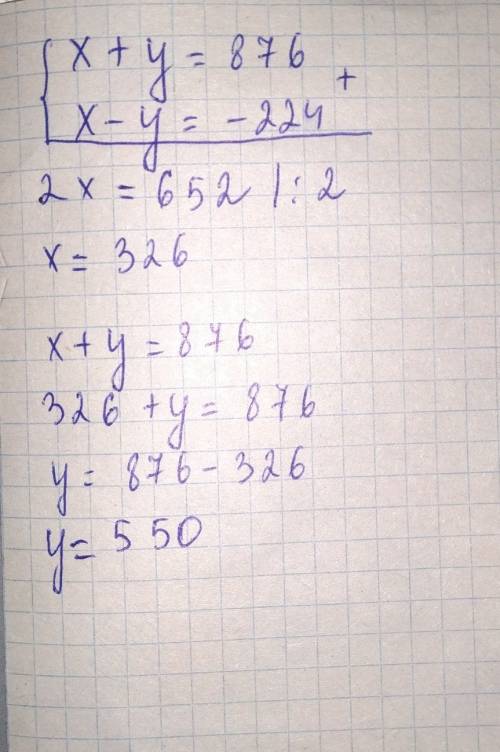 x + y = 876
+
x - y = -224
2x = 652 | : 2
x = 326
x + y = 876
326 + y = 876
y = 876 - 326
y = 550